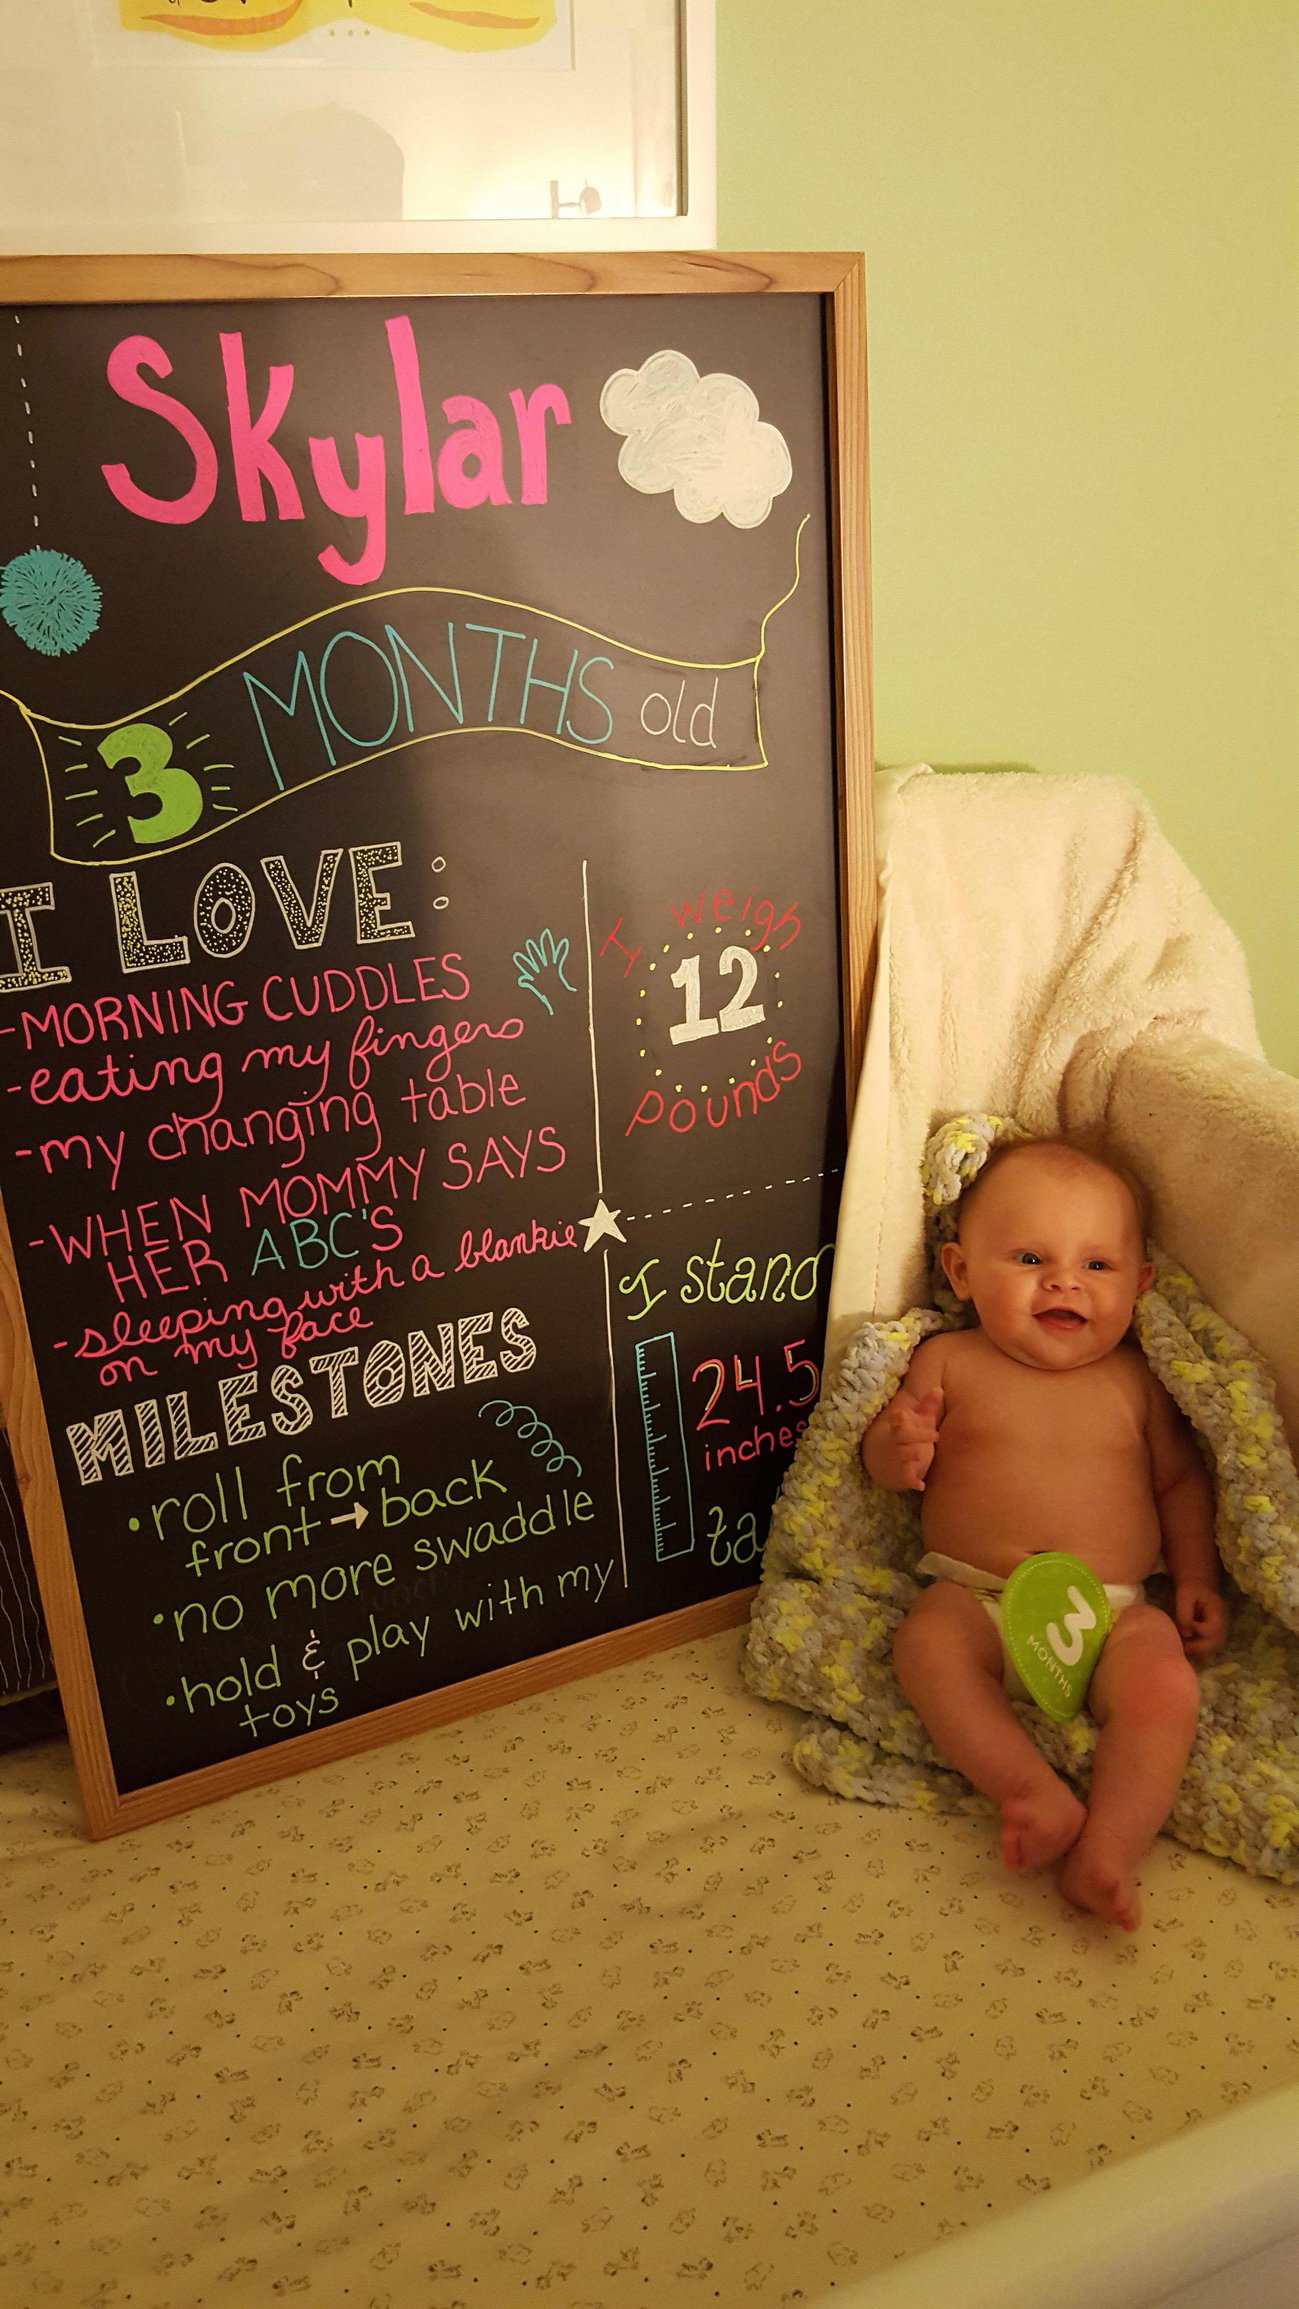 Skylar
3 MONTHS old
I LOVE:
-MORNING CUDDLES
-eating my fingers
-my changing table
-WHEN MOMMY SAYS
HER ABC'S
-sleeping with a blankie
on my face
MILESTONES
•roll from
front→back
•no more swaddle
•hold & play with my
toys
I weigh
12
pounds
I stand
24.5
inches
ta
3
MONTHS